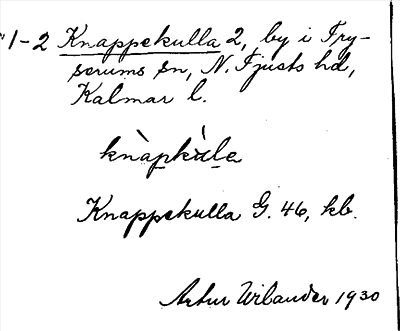 1-2 Knappekulla 2, by i Try-
serums sn, N. Tjusts hd,
Kalmar l.
knàpkùla
Knappekulla G. 46, kb.
Artur Wilander 1930